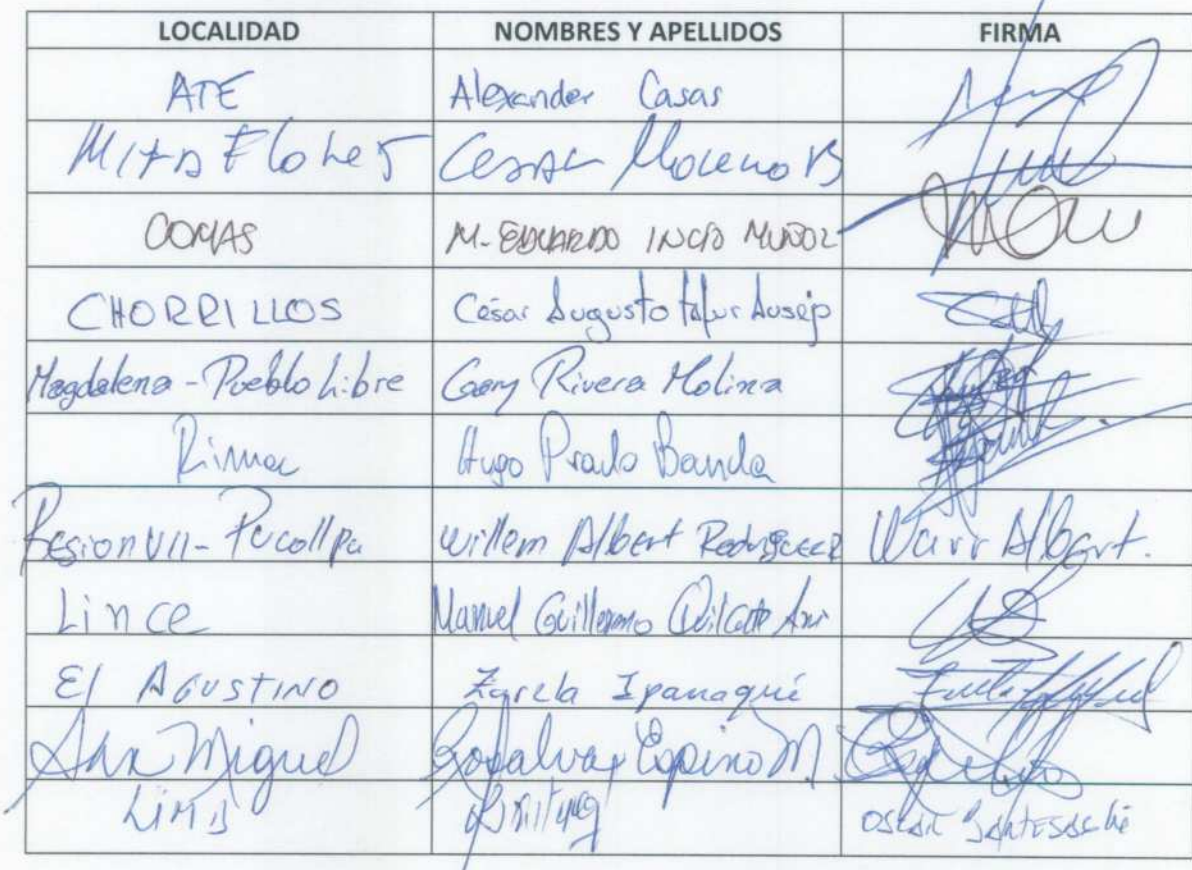 LOCALIDAD NOMBRES Y APELLIDOS FIRMA
ATE Alexander Casas
Miraflores Cesar Moreno B
COMAS M. EDUARDO INCIO MUÑOZ
CHORRILLOS César Augusto Ausejo
Magdalena - Pueblo Libre Gary Rivera Molina
Rimac Hugo Prado Banda
Region VII - Pucallpa Willem Albert Rodriguez Albert.
Lince Manuel Guillermo
El AGUSTINO Zarela Ipanaqué
San Miguel Espino M.
LIMA OSCAR